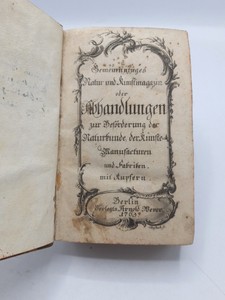 Gemeinnüziges
Natur und Kunstmagazin
oder
Abhandlungen
zur Beförderung der
Naturkunde, der Künste
Manufacturen
und Fabriken.
mit Kupfern.
Berlin
Arnold Wever